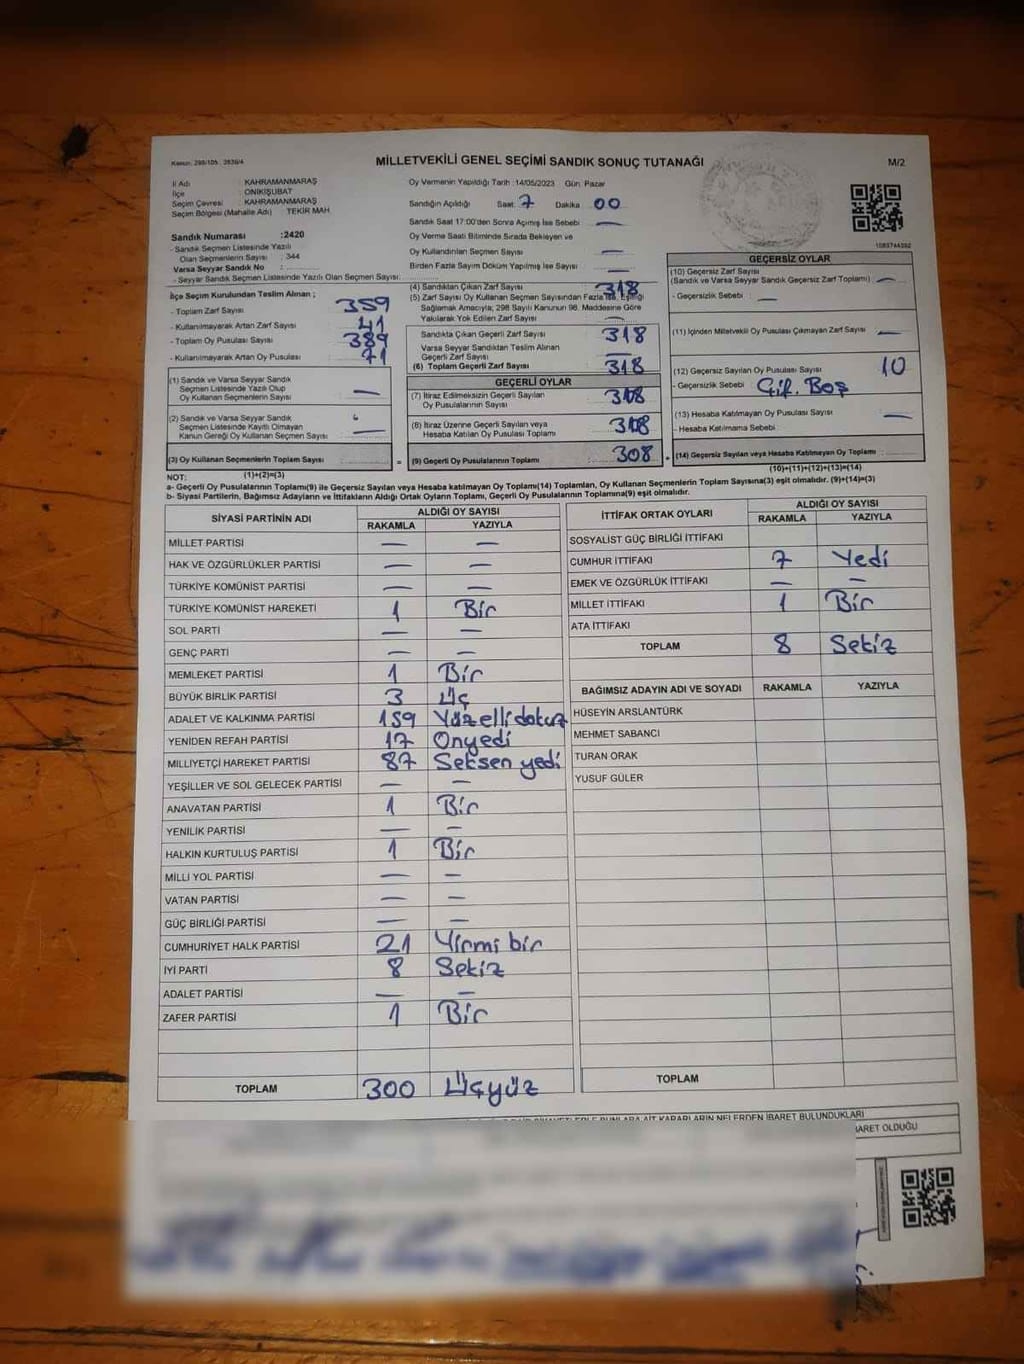 Kanun: 298/105, 2839/4
MİLLETVEKİLİ GENEL SEÇİMİ SANDIK SONUÇ TUTANAĞI
M/2
İl Adı : KAHRAMANMARAŞ
İlçe : ONİKİŞUBAT
Seçim Çevresi : KAHRAMANMARAŞ
Seçim Bölgesi (Mahalle Adı) TEKİR MAH.
Sandık Numarası :2420
- Sandık Seçmen Listesinde Yazılı
Olan Seçmenlerin Sayısı : 344
Varsa Seyyar Sandık No :
- Seyyar Sandık Seçmen Listesinde Yazılı Olan Seçmen Sayısı:
Oy Vermenin Yapıldığı Tarih :14/05/2023 Gün: Pazar
Sandığın Açıldığı Saat: 7 Dakika 00
Sandık Saat 17:00'den Sonra Açılmış İse Sebebi —
Oy Verme Saati Bitiminde Sırada Bekleyen ve
Oy Kullandırılan Seçmen Sayısı —
Birden Fazla Sayım Döküm Yapılmış İse Sayısı —
İlçe Seçim Kurulundan Teslim Alınan ;
- Toplam Zarf Sayısı 359
- Kullanılmayarak Artan Zarf Sayısı 41
- Toplam Oy Pusulası Sayısı 389
- Kullanılmayarak Artan Oy Pusulası 71
(1) Sandık ve Varsa Seyyar Sandık
Seçmen Listesinde Yazılı Olup
Oy Kullanan Seçmenlerin Sayısı : —
(2) Sandık ve Varsa Seyyar Sandık
Seçmen Listesinde Kayıtlı Olmayan
Kanun Gereği Oy Kullanan Seçmen Sayısı : —
(3) Oy Kullanan Seçmenlerin Toplam Sayısı :
(4) Sandıktan Çıkan Zarf Sayısı 318
(5) Zarf Sayısı Oy Kullanan Seçmen Sayısından Fazla İse, Eşitliği
Sağlamak Amacıyla; 298 Sayılı Kanunun 98. Maddesine Göre
Yakılarak Yok Edilen Zarf Sayısı : —
Sandıkta Çıkan Geçerli Zarf Sayısı 318
Varsa Seyyar Sandıktan Teslim Alınan
Geçerli Zarf Sayısı —
(6) Toplam Geçerli Zarf Sayısı 318
GEÇERLİ OYLAR
(7) İtiraz Edilmeksizin Geçerli Sayılan
Oy Pusulalarının Sayısı :
(8) İtiraz Üzerine Geçerli Sayılan veya
Hesaba Katılan Oy Pusulası Toplamı
(9) Geçerli Oy Pusulalarının Toplamı 308
GEÇERSİZ OYLAR
(10) Geçersiz Zarf Sayısı
(Sandık ve Varsa Seyyar Sandık Geçersiz Zarf Toplamı) —
- Geçersizlik Sebebi : —
(11) İçinden Milletvekili Oy Pusulası Çıkmayan Zarf Sayısı —
(12) Geçersiz Sayılan Oy Pusulası Sayısı 10
- Geçersizlik Sebebi Çif. Boş
(13) Hesaba Katılmayan Oy Pusulası Sayısı —
- Hesaba Katılmama Sebebi :
(14) Geçersiz Sayılan veya Hesaba Katılmayan Oy Toplamı :
NOT: (1)+(2)=(3)
(10)+(11)+(12)+(13)=(14)
a- Geçerli Oy Pusulalarının Toplamı(9) ile Geçersiz Sayılan veya Hesaba katılmayan Oy Toplamı(14) Toplamları, Oy Kullanan Seçmenlerin Toplam Sayısına(3) eşit olmalıdır. (9)+(14)=(3)
b- Siyasi Partilerin, Bağımsız Adayların ve İttifakların Aldığı Ortak Oyların Toplamı, Geçerli Oy Pusulalarının Toplamına(9) eşit olmalıdır.
SİYASİ PARTİNİN ADI ALDIĞI OY SAYISI
RAKAMLA YAZIYLA
MİLLET PARTİSİ — —
HAK VE ÖZGÜRLÜKLER PARTİSİ — —
TÜRKİYE KOMÜNİST PARTİSİ — —
TÜRKİYE KOMÜNİST HAREKETİ 1 Bir
SOL PARTİ — —
GENÇ PARTİ — —
MEMLEKET PARTİSİ 1 Bir
BÜYÜK BİRLİK PARTİSİ 3 Üç
ADALET VE KALKINMA PARTİSİ 159 Yüzellidokuz
YENİDEN REFAH PARTİSİ 17 Onyedi
MİLLİYETÇİ HAREKET PARTİSİ 87 Seksen yedi
YEŞİLLER VE SOL GELECEK PARTİSİ — —
ANAVATAN PARTİSİ 1 Bir
YENİLİK PARTİSİ — —
HALKIN KURTULUŞ PARTİSİ 1 Bir
MİLLİ YOL PARTİSİ — —
VATAN PARTİSİ — —
GÜÇ BİRLİĞİ PARTİSİ — —
CUMHURİYET HALK PARTİSİ 21 Yirmi bir
İYİ PARTİ 8 Sekiz
ADALET PARTİSİ — —
ZAFER PARTİSİ 1 Bir
TOPLAM 300 Üçyüz
İTTİFAK ORTAK OYLARI ALDIĞI OY SAYISI
RAKAMLA YAZIYLA
SOSYALİST GÜÇ BİRLİĞİ İTTİFAKI
CUMHUR İTTİFAKI 7 Yedi
EMEK VE ÖZGÜRLÜK İTTİFAKI — —
MİLLET İTTİFAKI 1 Bir
ATA İTTİFAKI
TOPLAM 8 Sekiz
BAĞIMSIZ ADAYIN ADI VE SOYADI RAKAMLA YAZIYLA
HÜSEYİN ARSLANTÜRK
MEHMET SABANCI
TURAN ORAK
YUSUF GÜLER
TOPLAM
BUNLARA AİT KARARLARIN NELERDEN İBARET BULUNDUKLARI
BARET OLDUĞU